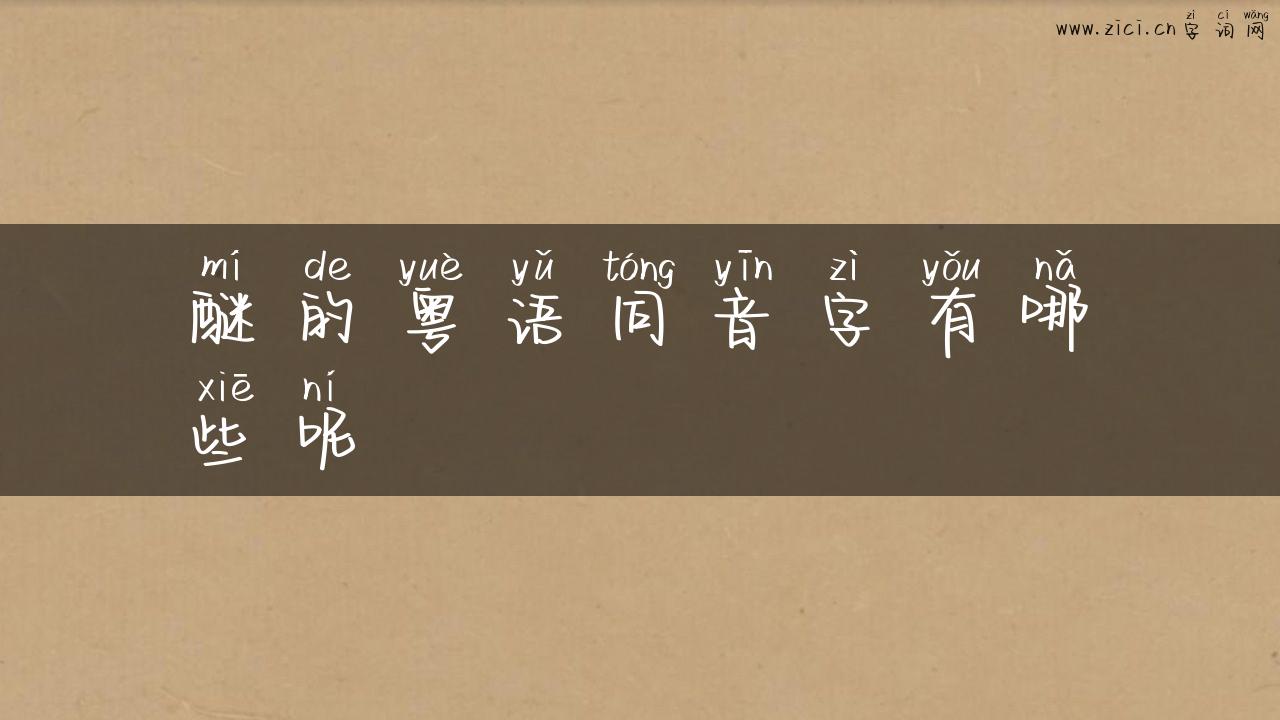 zì cí wǎng
www.zici.cn 字词网
mí de yuè yǔ tóng yīn zì yǒu nǎ
醚的粤语同音字有哪
xiē ní
些呢